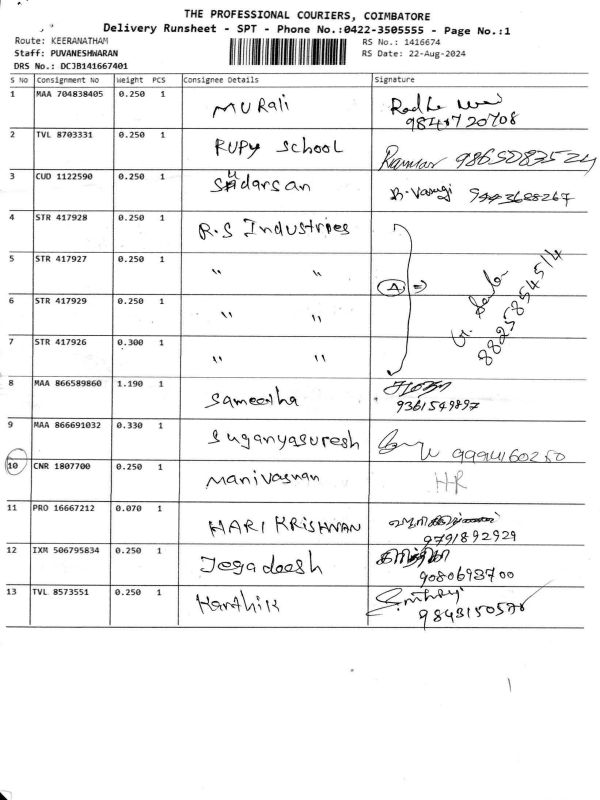 THE PROFESSIONAL COURIERS, COIMBATORE
Delivery Runsheet - SPT - Phone No.:0422-3505555 - Page No.:1
Route: KEERANATHAM RS No.: 1416674
Staff: PUVANESHWARAN RS Date: 22-Aug-2024
DRS No.: DCJB141667401
S No Consignment No Weight PCS Consignee Details Signature
1 MAA 704838405 0.250 1 MURali
2 TVL 8703331 0.250 1 RUPY School
3 CUD 1122590 0.250 1
4 STR 417928 0.250 1 R.S Industries
5 STR 417927 0.250 1 " "
6 STR 417929 0.250 1 " "
7 STR 417926 0.300 1 " "
88258 54514
8 MAA 866589860 1.190 1 Sameetha
9361549897
9 MAA 866691032 0.330 1 Suganyasuresh 9994160250
10 CNR 1807700 0.250 1 HR
11 PRO 16667212 0.070 1 HARI KRISHNAN
9791892929
12 IXM 506795834 0.250 1 Jegadeesh
9080693700
13 TVL 8573551 0.250 1 Karthik